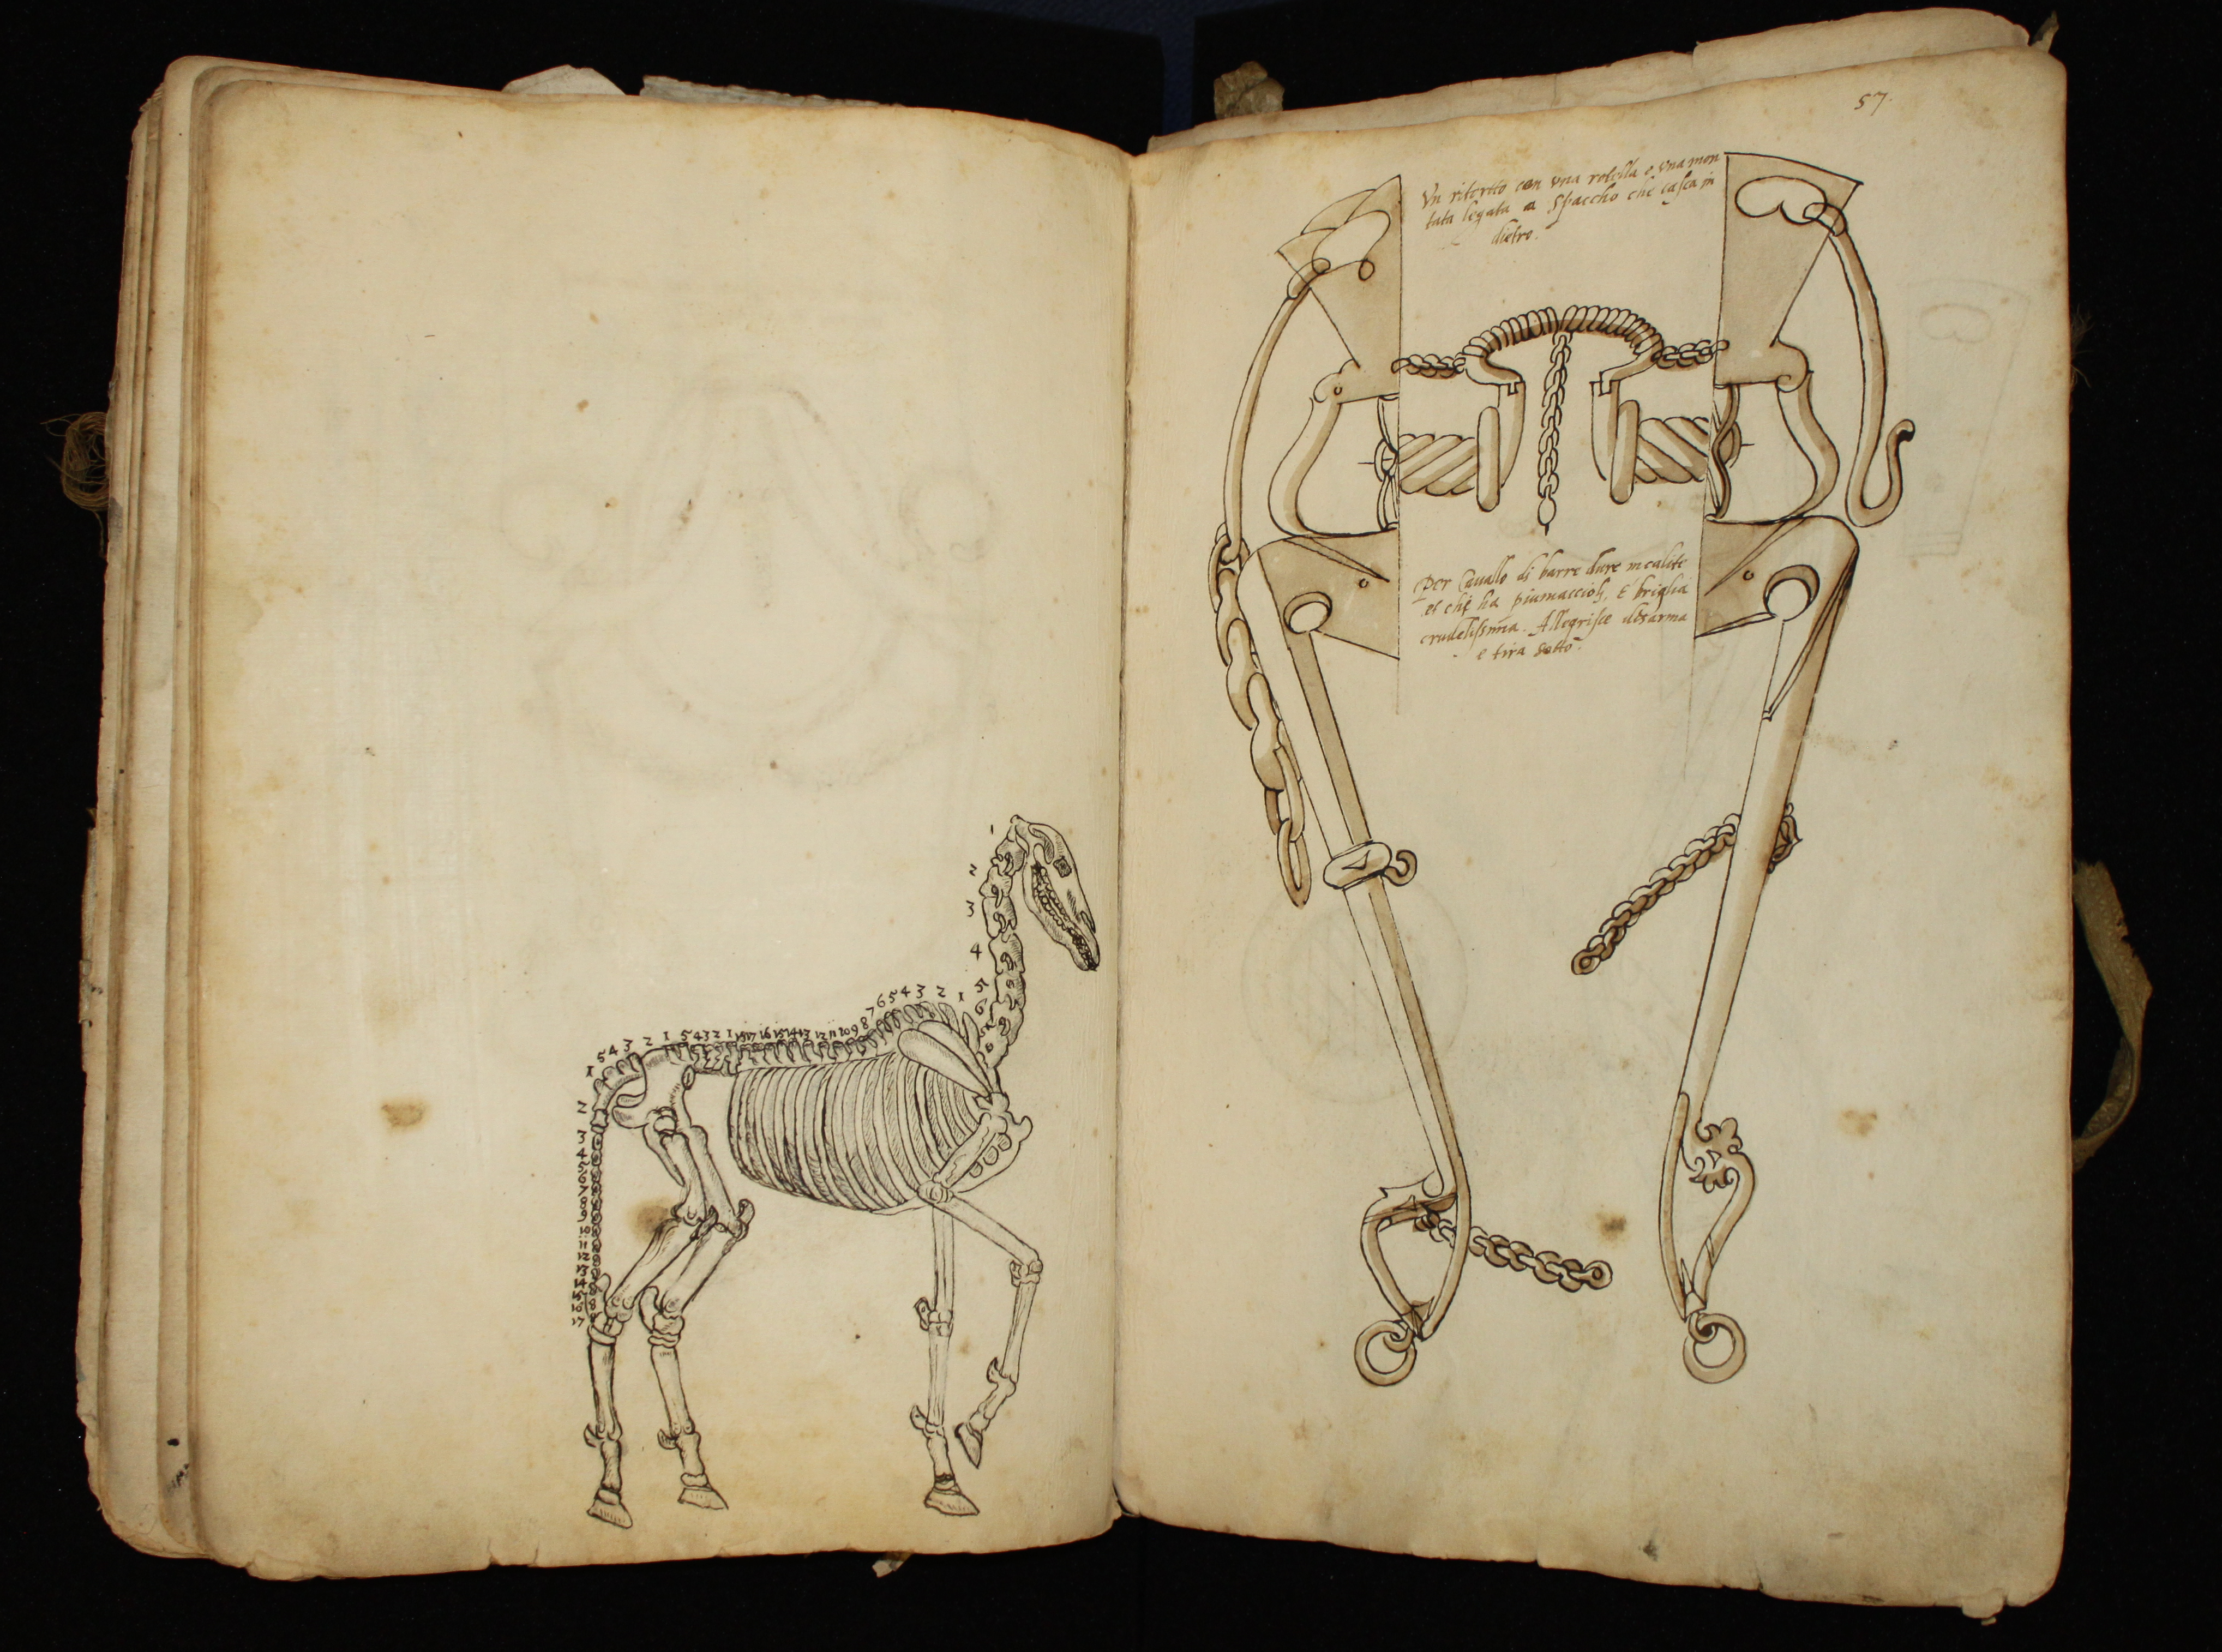 1
2
3
4
5
6
7
1 2 3 4 5 6 7 8 9 10 11 12 13 14 15 16 17
1 2 3 4 5
1 2 3 4 5
1
2
3
4
5
6
7
8
9
10
11
12
13
14
15
16
17
57.
Vn ritortto con vna rotella e vna mon
tata legata a Spaccho che casca in
dietro.
Per Cauallo di barre dure incalite
et che ha piumaccioli, E briglia
crudelissima. Allegrisce disarma
e tira sotto.